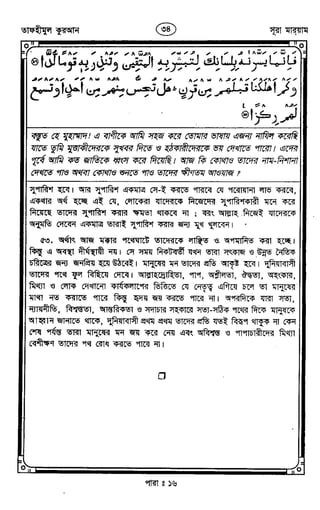 তাফহীমুল কুরআন ৩৪ সূরা মারয়াম
فَإِنَّمَا يَسَّرْنٰهُ بِلِسَانِكَ لِتُبَشِّرَ بِهِ الْمُتَّقِينَ وَتُنْذِرَ بِهِ قَوْمًا لُّدًّا
وَكَمْ أَهْلَكْنَا قَبْلَهُمْ مِّنْ قَرْنٍ هَلْ تُحِسُّ مِنْهُمْ مِّنْ أَحَدٍ أَوْ تَسْمَعُ
لَهُمْ رِكْزًا
বস্তুত হে মুহাম্মাদ! এ বাণীকে আমি সহজ করে তোমার ভাষায় এজন্য নাযিল করেছি
যাতে তুমি মুত্তাকীদেরকে সুখবর দিতে ও হঠকারীদেরকে ভয় দেখাতে পারো। এদের
পূর্বে আমি কত জাতিকে ধ্বংস করে দিয়েছি। আজ কি কোথাও তাদের নাম-নিশানা
দেখতে পাও অথবা কোথাও শুনতে পাও তাদের ক্ষীণতম আওয়াজ?
সুপারিশ হবে। আর সুপারিশ একমাত্র সে-ই করতে পারবে যে পরোয়ানা লাভ করবে,
একথার অর্থ হচ্ছে এই যে, লোকেরা যাদেরকে নিজেদের সুপারিশকারী মনে করে
নিয়েছে তাদের সুপারিশ করার ক্ষমতা থাকবে না ; বরং আল্লাহ নিজেই যাদেরকে
অনুমতি দেবেন একমাত্র তারাই সুপারিশ করার জন্য মুখ খুলবেন।
৫৩. অর্থাৎ আজ মক্কার পথেঘাটে তাদেরকে লাঞ্ছিত ও অপমানিত করা হচ্ছে।
কিন্তু এ অবস্থা দীর্ঘস্থায়ী নয়। সে সময় নিকটবর্তী যখন তারা সৎকাজ ও উন্নত নৈতিক
চরিত্রের জন্য জনপ্রিয় হয়ে উঠবেই। মানুষের মন তাদের প্রতি আকৃষ্ট হবে। দুনিয়াবাসী
তাদের পথে ফুল বিছিয়ে দেবে। আল্লাহদ্রোহিতা, পাপ, অশ্লীলতা, ঔদ্ধত্য, অহংকার,
মিথ্যা ও লোক দেখানো কার্যকলাপের ভিত্তিতে যে নেতৃত্ব এগিয়ে চলে তা মানুষের
মাথা নত করাতে পারে কিন্তু হৃদয় জয় করতে পারে না। অপরদিকে যারা সত্য,
ন্যায়নীতি, বিশ্বস্ততা, আন্তরিকতা ও সদাচার সহকারে সত্য-সঠিক পথের দিকে মানুষকে
আহ্বান জানাতে থাকে, দুনিয়াবাসী প্রথম প্রথম তাদের প্রতি যতই বিরূপ থাকুক না কেন
শেষ পর্যন্ত তারা মানুষের মন জয় করে নেয় এবং অবিশ্বস্ত ও পাপাচারীদের মিথ্যা
বেশীক্ষণ তাদের পথ রোধ করতে পারে না।
পারা : ১৬